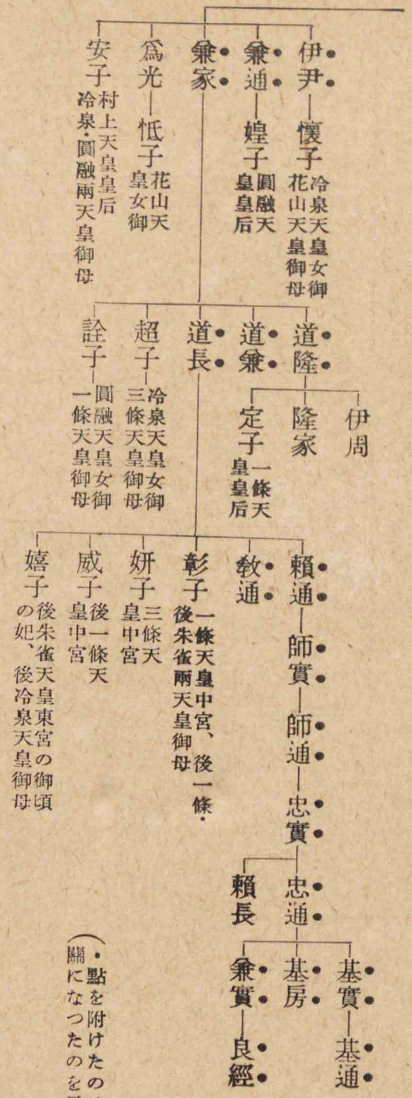 伊尹
懷子
冷泉天皇女御
花山天皇御母
兼通
媓子
圓融天
皇皇后
兼家
爲光
怟子
花山天
皇女御
安子
村上天皇皇后
冷泉・圓融兩天皇御母
道隆
伊周
隆家
定子
一條天
皇皇后
道兼
道長
超子
冷泉天皇女御
三條天皇御母
詮子
圓融天皇女御
一條天皇御母
賴通
師實
師通
忠實
忠通
基實
基通
基房
兼實
良經
賴長
敎通
彰子
一條天皇中宮、後一條・
後朱雀兩天皇御母
妍子
三條天
皇中宮
威子
後一條天
皇中宮
嬉子
後朱雀天皇東宮の御頃
の妃、後冷泉天皇御母
(・點を附けたの
關になつたのを